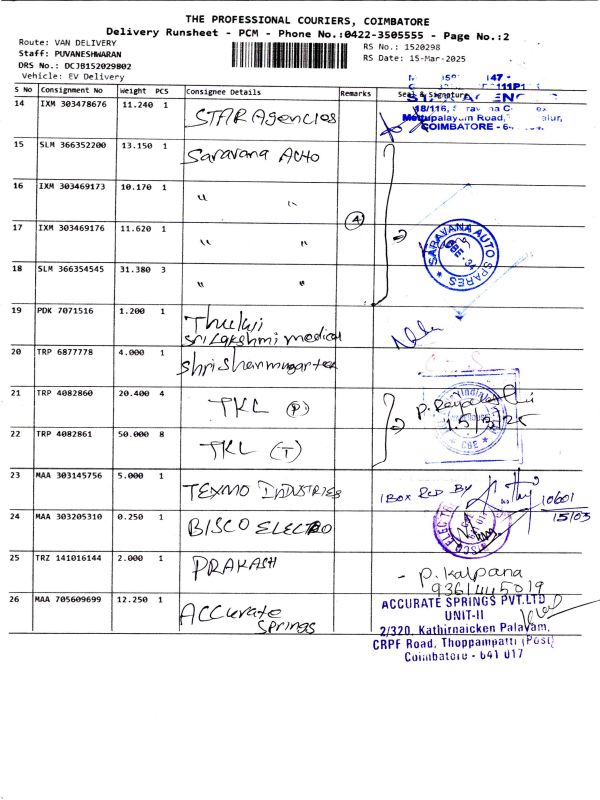 THE PROFESSIONAL COURIERS, COIMBATORE
Delivery Runsheet - PCM - Phone No.:0422-3505555 - Page No.:2
Route: VAN DELIVERY
RS No.: 1520298
Staff: PUVANESHWARAN
RS Date: 15-Mar-2025
DRS No.: DCJB152029802
Vehicle: EV Delivery
S No Consignment No Weight PCS Consignee Details Remarks Seal & Signature
14 IXM 303478676 11.240 1 STAR Agencies
18/116,
Mettupalayam Road,
COIMBATORE - 6
15 SLM 366352200 13.150 1 Saravana Auto
16 IXM 303469173 10.170 1 " "
17 IXM 303469176 11.620 1 " "
4
SARAVANA AUTO SPARES
CBE
18 SLM 366354545 31.380 3 " "
19 PDK 7071516 1.200 1 Thulsi
Sri Lakshmi medical
20 TRP 6877778 4.000 1 Shri Shanmugar tex
21 TRP 4082860 20.400 4 TKL (P)
15/3/25
CBE
22 TRP 4082861 50.000 8 TKL (T)
23 MAA 303145756 5.000 1 TEXMO INDUSTRIES 1 BOX RCD BY
10601
15/03
24 MAA 303205310 0.250 1 BISCO ELECTRO
25 TRZ 141016144 2.000 1 PRAKASH
- P. Kalpana
9361445019
26 MAA 705609699 12.250 1 Accurate
Springs
ACCURATE SPRINGS PVT.LTD
UNIT-II
2/320, Kathirnaicken Palayam,
CRPF Road, Thoppampatti (Post)
Coimbatore - 641 017